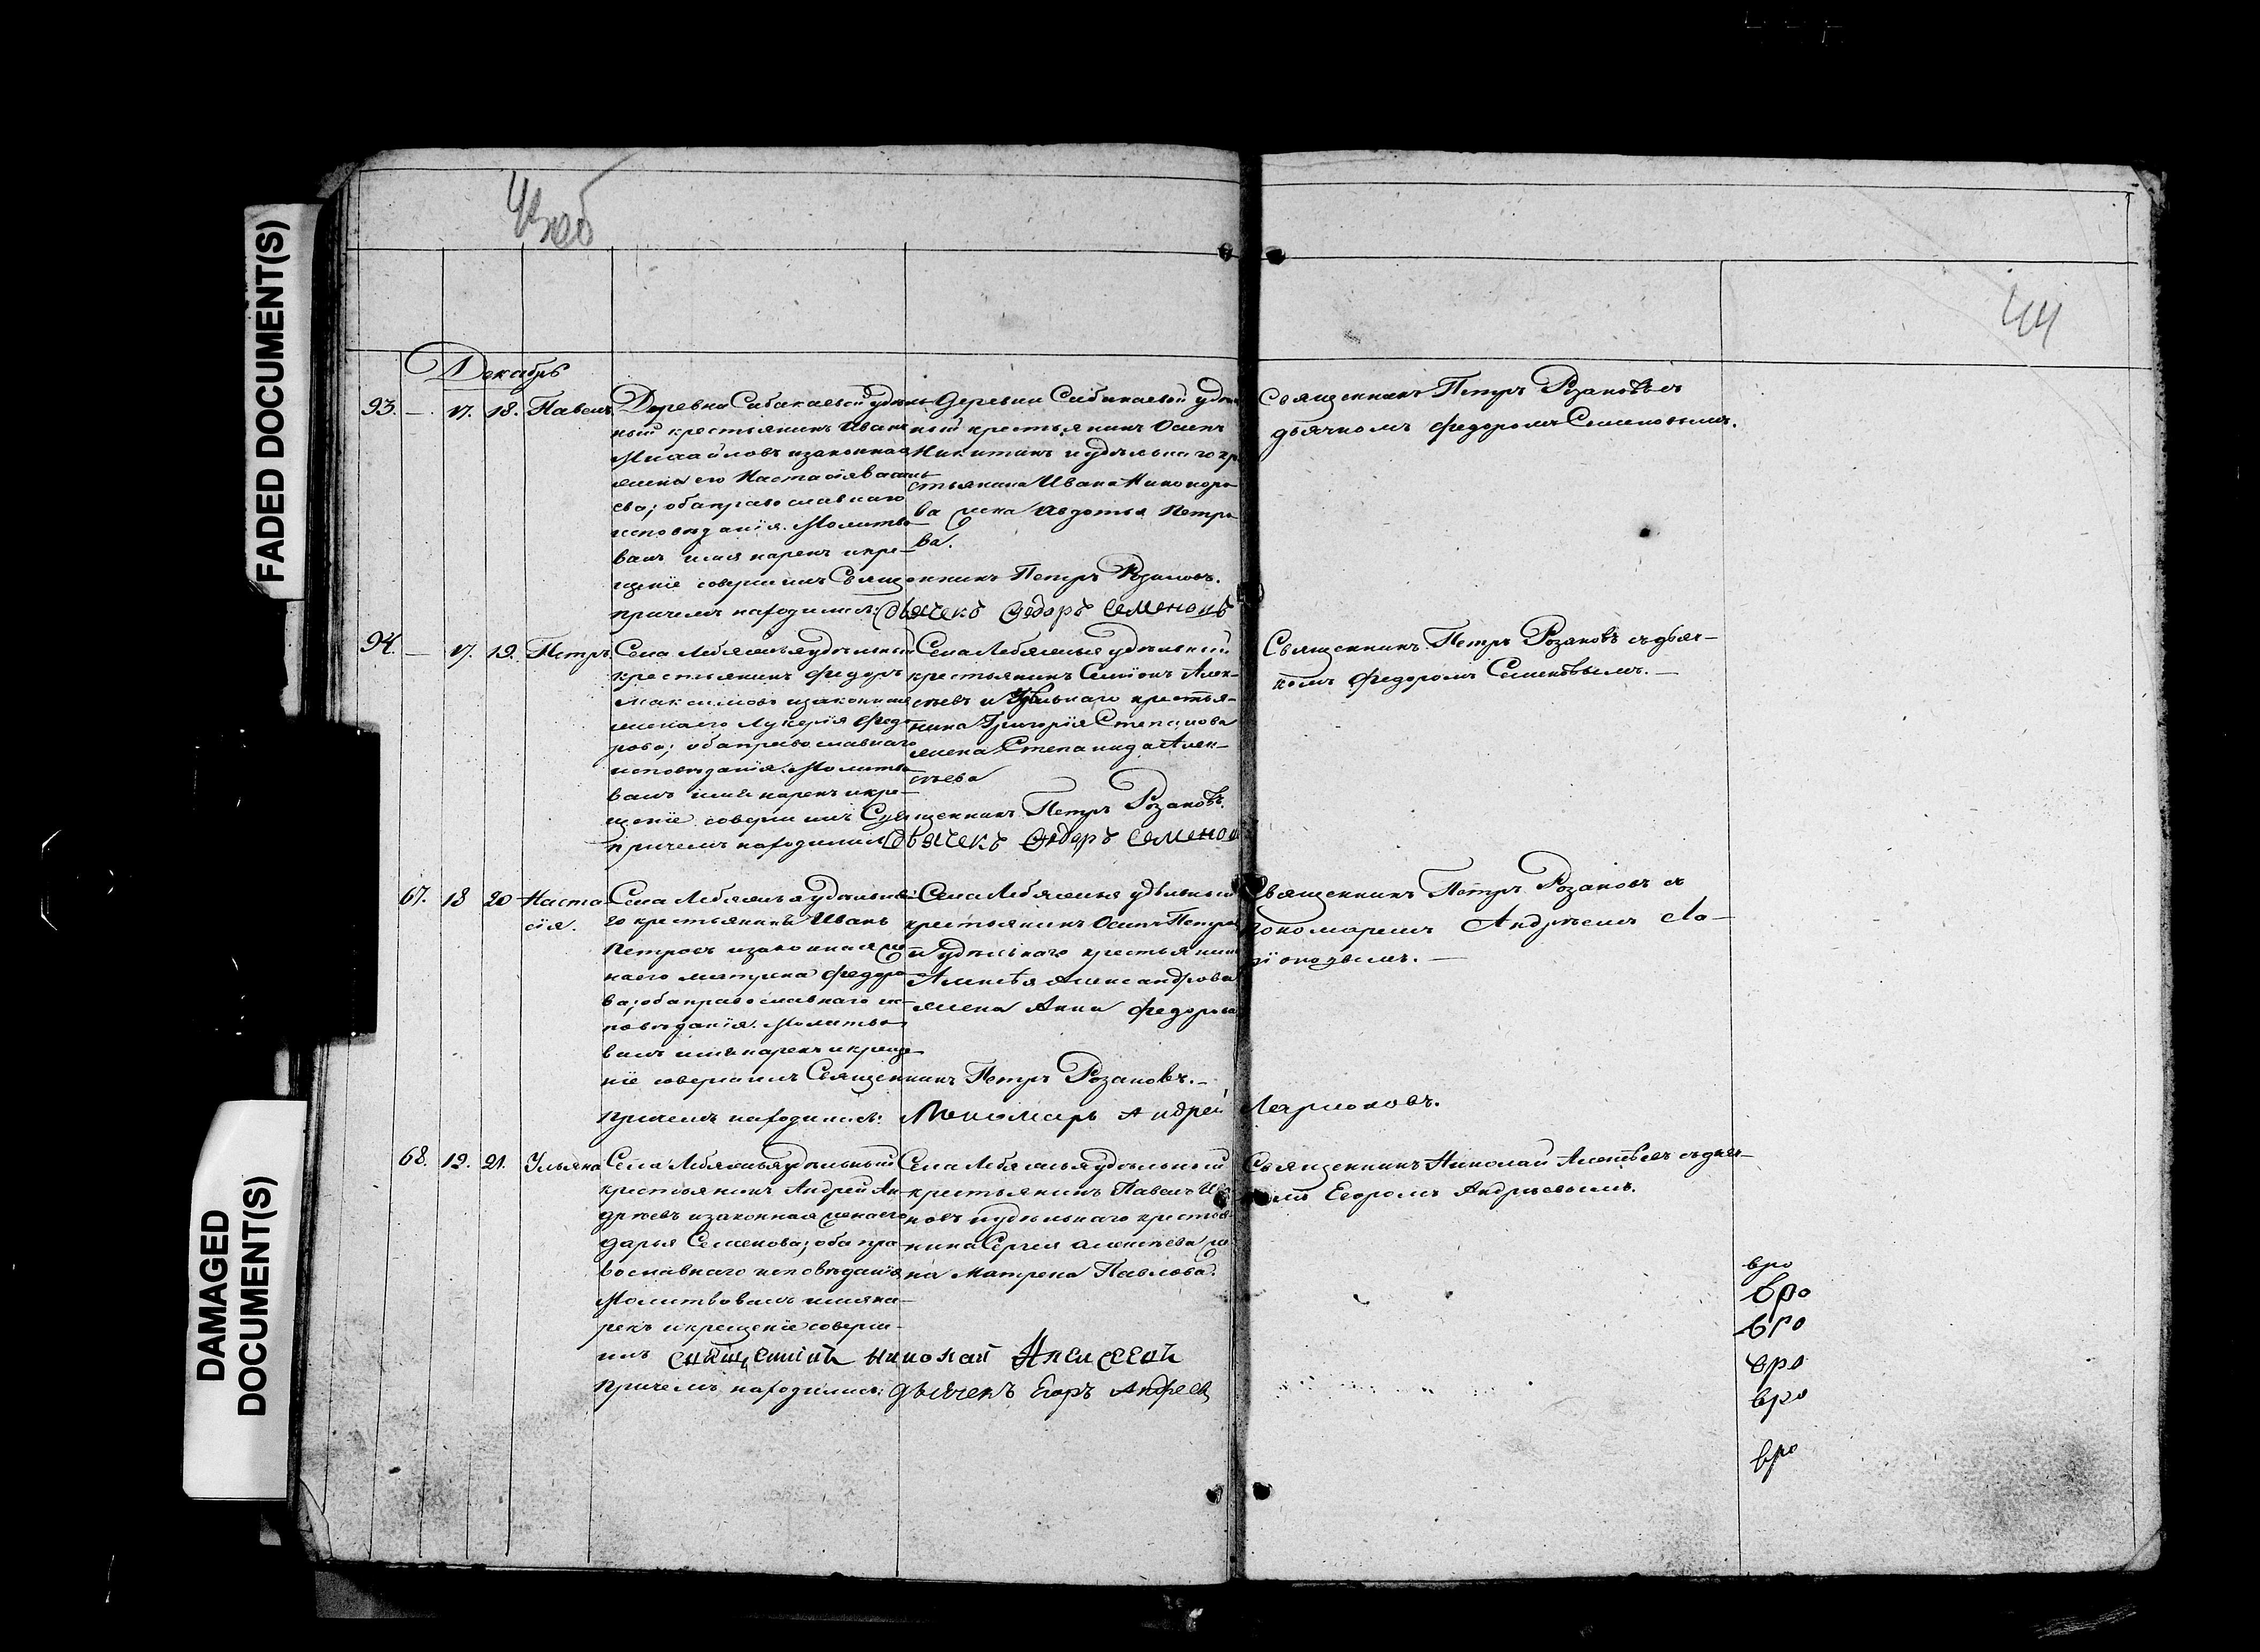 FADED DOCUMENT(S)
DAMAGED
DOCUMENT(S)
44
Декабрь
93. — 17. 18. Павелъ
Деревни Сабакаевой удѣль-
ный крестьянинъ Иванъ
Михайловъ и законная
жена его Настасія Василь-
ева; оба православнаго
исповѣданія. Молитво-
валъ имя нарекъ и кре-
щеніе совершилъ Священникъ Петръ Розановъ.
При чемъ находился: Дьячекъ Ѳедоръ Семеновъ
Деревни Сабакаевой удѣль
ный крестьянинъ Осипъ
Никитинъ и удѣльнаго кре
стьянина Ивана Никоноро
ва жена Авдотья Петро-
ва.
Священникъ Петръ Розановъ съ
дьячкомъ Федоромъ Семеновымъ.
94. — 17. 19. Петръ.
Села Лебяжья удѣльный
крестьянинъ Федоръ
Максимовъ и законная
жена его Лукерія Федо-
рова; оба православнаго
исповѣданія. Молитво-
валъ имя нарекъ и кре-
щеніе совершилъ Священникъ Петръ Розановъ.
При чемъ находился Дьячекъ Ѳедоръ Семенов
Села Лебяжья удѣльный
крестьянинъ Семіонъ Алек-
сѣевъ и удѣльнаго крестья-
нина Григорія Степанова
жена Степанида Алек-
сѣева
Священникъ Петръ Розановъ съ дьяч-
комъ Федоромъ Семеновымъ. —
67. 18 20 Наста
сія.
Села Лебяжья удѣльна-
го крестьянинъ Иванъ
Петровъ и законная же
на его Матрена Федоро
ва; оба православнаго ис-
повѣданія. Молитво-
валъ имя нарекъ и креще-
ніе совершилъ Священникъ Петръ Розановъ. —
При чемъ находился: Пономарь Андрей Ларионовъ.
Села Лебяжья удѣльный
крестьянинъ Осипъ Петров
и удѣльнаго крестьянин
Алексѣя Александрова
жена Анна Федорова
Священникъ Петръ Розановъ съ
пономаремъ Андрѣемъ Ла-
ріоновымъ. —
68. 19. 21. Ульяна
Села Лебяжья удѣльный
крестьянинъ Андрей Ан-
дрѣевъ и законная жена его
Дарья Семенова; оба пра
вославнаго исповѣданія
Молитвовалъ имя на-
рекъ и крещеніе совер-
шилъ Священникъ Николай Алексеевъ
При чемъ находились: дьячекъ Егоръ Андреев
Села Лебяжья удѣльный
крестьянинъ Павелъ Ива
новъ и удѣльнаго крестья-
нина Сергея Алексѣева же
на Матрена Павлова.
Священникъ Николай Алексѣевъ съ дьяч-
комъ Егоромъ Андрѣевымъ.
вро
вро
вро
вро
вро
вро